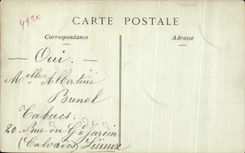 4920
CARTE POSTALE
Correspondance
Adresse
Oui.
Melle Albertine
Brunel
Tabacs
20 Rue du Gd Jardin
(Calvados) Lisieux